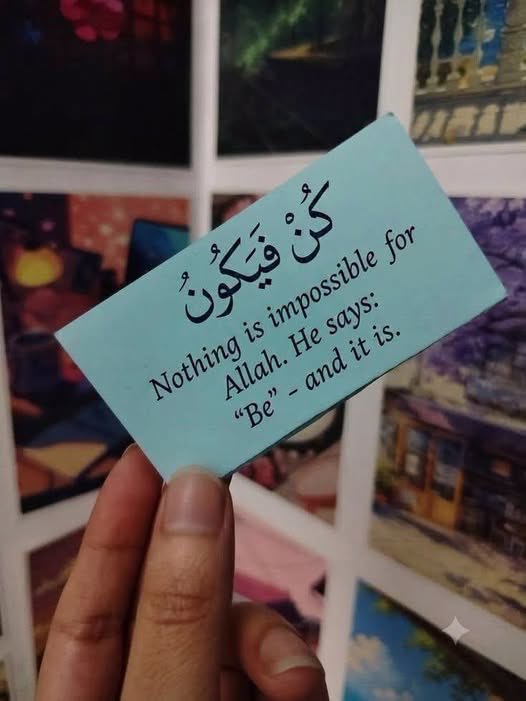 كُنْ فَيَكُونُ
Nothing is impossible for
Allah. He says:
“Be” - and it is.